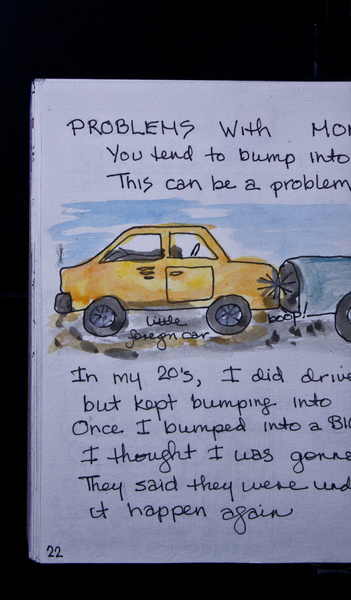 PROBLEMS With MO
You tend to bump into
This can be a problem
little
foreign car
boop!
In my 20's, I did drive
but kept bumping into
Once I bumped into a BI
I thought I was gonna
They said they were und
it happen again
22